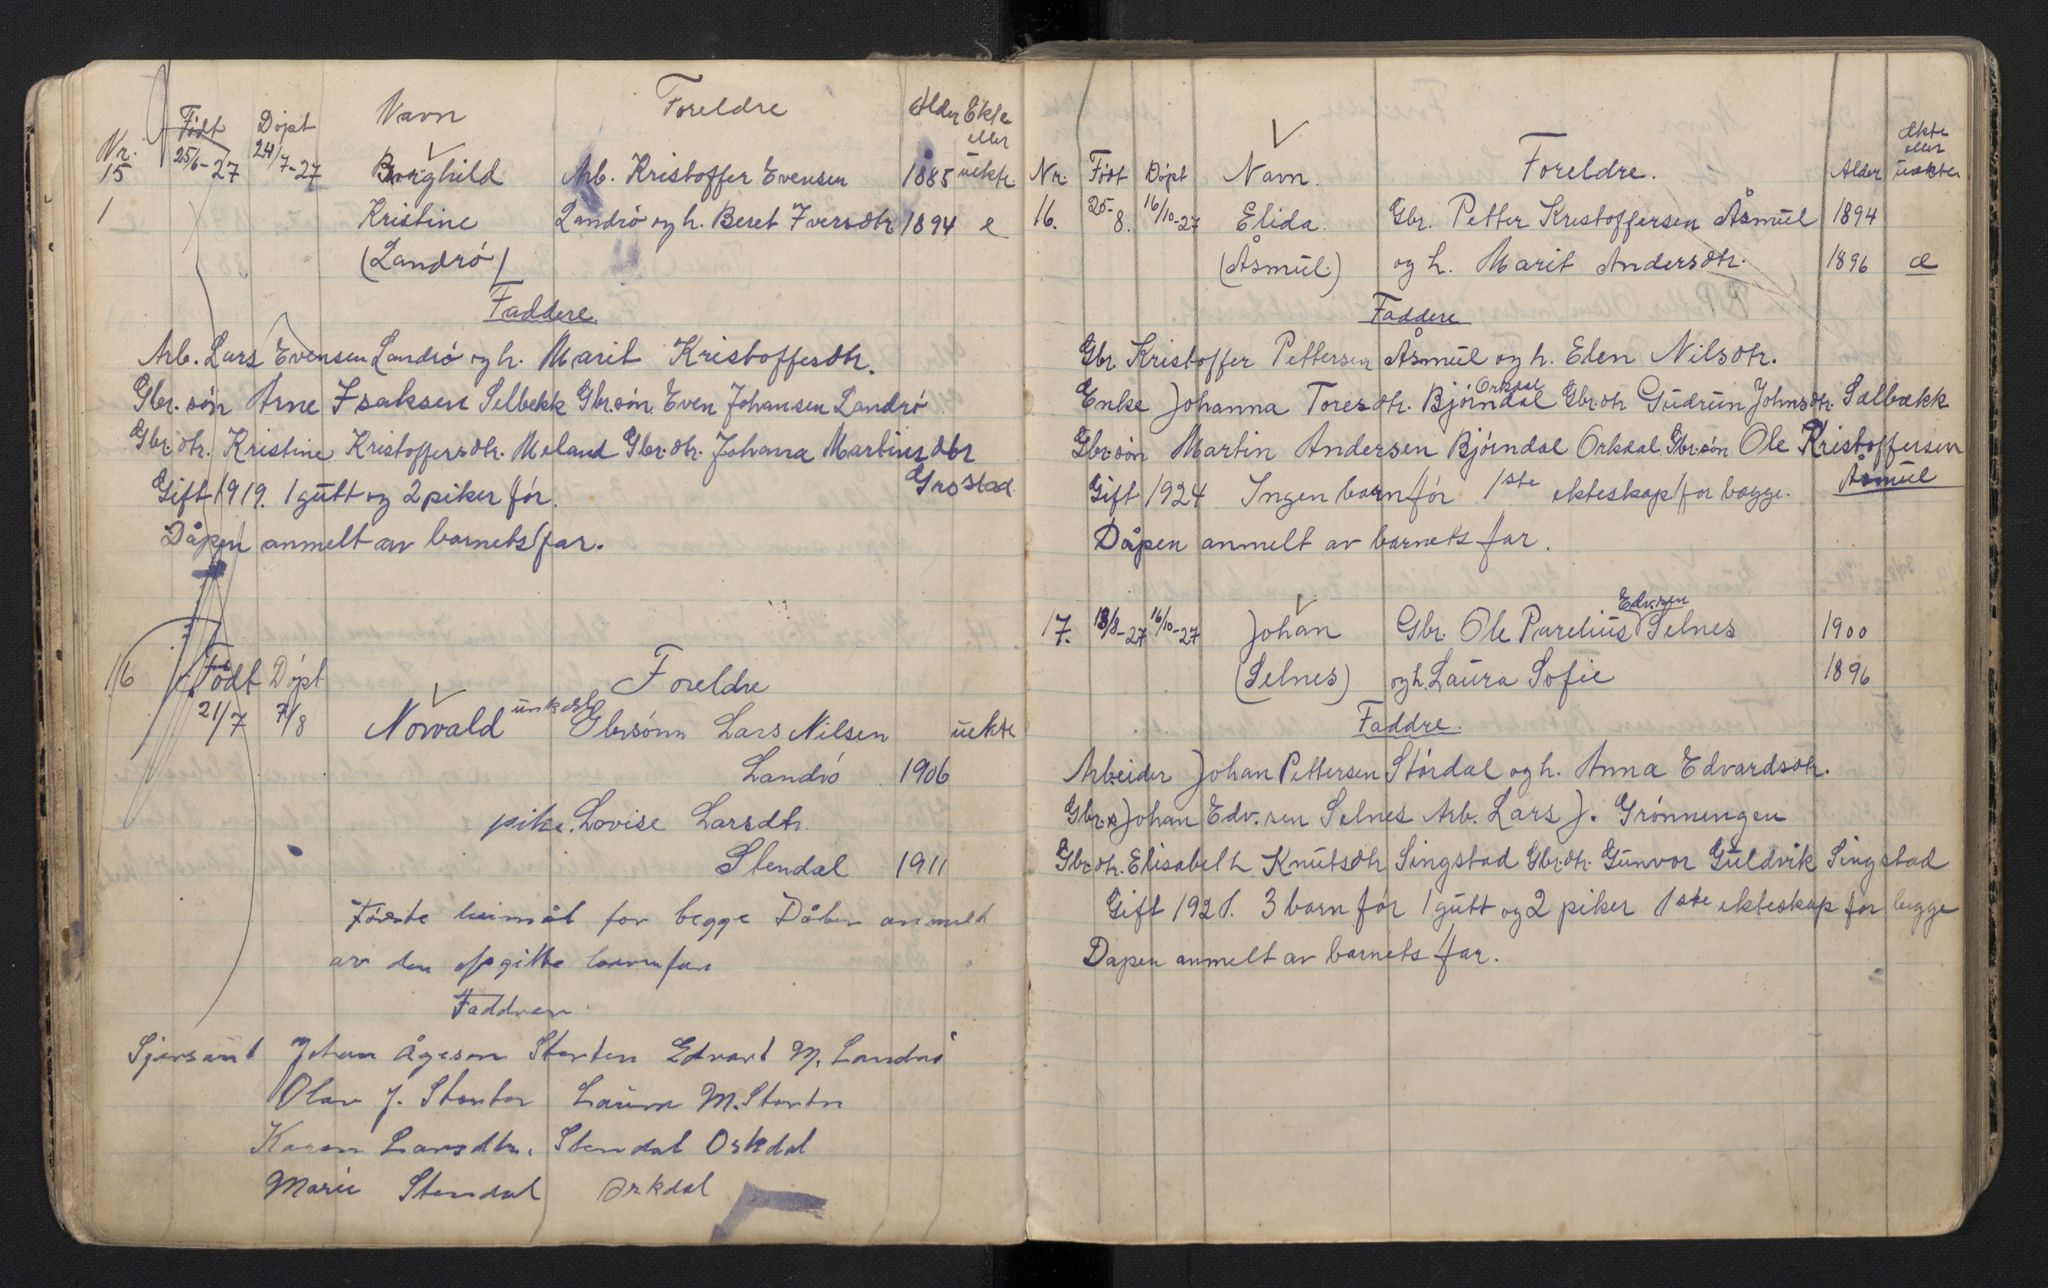 Nr. Født Døpt Navn Foreldre Alder Ekte eller uekte
15 25/6-27 24/7-27 Borghild Arb. Kristoffer Evensen 1885
1 Kristine Landrø og h. Beret Iversdtr 1894 e
(Landrø)
Faddere
Arb. Lars Evensen Landrø og h. Marit Kristoffersdtr.
Gbr.søn Arne Isaksen Selbekk Gbr.søn. Even Johansen Landrø
Gbr.dtr. Kristine Kristoffersdtr. Meland Gbr.dtr. Johana Martinsdtr
Grostad
Gift 1919. 1 gutt og 2 piker før.
Dåpen anmelt av barnets far.
16 Født Døpt Foreldre
21/7 7/8 Norvald Gbrsønn Lars Nilsen uekte
Landrø 1906
pike. Lovise Larsdtr.
Stendal 1911
Første leirmål for begge Dåben anmeldt
av den opgitte barnefar
Faddere
Johan Ågesen Stenten Edvart M. Landrø
Olav J. Laura M.
Karen Larsdtr. Stendal Orkdal
Marie Stendal Orkdal
Nr. Født Døpt Navn. Foreldre. Alder ekte eller uekte
16. 25-8. 16/10-27 Elida. Gbr. Petter Kristoffersen Åsmul 1894
(Åsmul.) og h. Marit Andersdtr. 1896 e
Faddere
Gbr. Kristoffer Pettersen Åsmul og h. Elen Nilsdtr.
Enke Johanna Toresdtr. Bjørndal Orkdal Gbr.dtr Gudrun Johnsdtr. Sælbekk
Gbr.søn Martin Andersen Bjørndal Orkdal. Gbr.søn Ole Kristoffersen
Åsmul
Gift 1924 Ingen barn før 1ste ekteskap for begge.
Dåpen anmelt av barnets far.
17. 18/8-27 16/10-27 Johan Gbr. Ole Parelius Edv.sen Selnes 1900
(Selnes) og h. Laura Sofie 1896
Faddre.
Arbeider Johan Pettersen Stördal og h. Anna Edvardsdtr.
Gbr.s Johan Edv.sen Selnes Arb. Lars J. Grønningen
Gbr.dtr. Elisabeth Knutsdtr Singstad Gbr.dtr. Gunvor Guldvik Singstad
Gift 1921. 3 barn før 1 gutt og 2 piker 1ste ekteskap for begge
Dapen anmelt av barnets far.